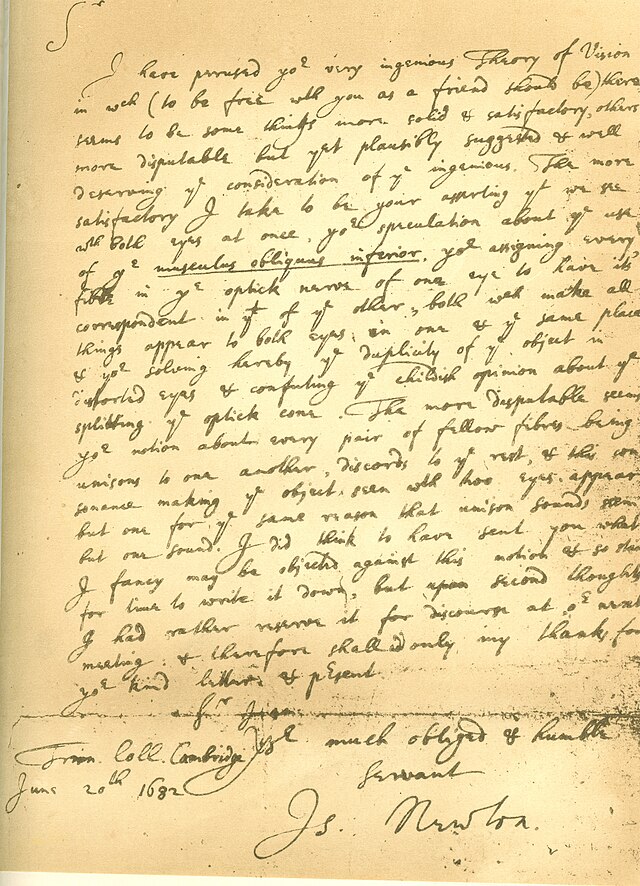 Sr
I have perused yor very ingenious Theory of Vision
in wch (to be free wth you as a friend should be) there
seems to be some things more solid & satisfactory, others
more disputable but yet plausibly suggested & well
deserving ye consideration of ye ingenious. The more
satisfactory I take to be your asserting yt we see
wth both eyes at once, yor speculation about ye use
of ye musculus obliquus inferior, yor assigning every
fibre in ye optick nerve of one eye to have its
correspondent in yt of ye other, both wch make all
things appear to both eyes in one & ye same place
& yor solving hereby ye duplicity of ye object in
distorted eyes & confuting ye childish opinion about ye
splitting ye optick cone. The more disputable seems
yor notion about every pair of fellow fibres being
unisons to one another, discords to ye rest, & this con
sonance making ye object seen with two eyes appear
but one for ye same reason that unison sounds seem
but one sound. I did think to have sent you what
I fancy may be objected against this notion & so
for time to write it down, but upon second thoughts
I had rather reserve it for discourse at or next
meeting: & therefore shall add only my thanks for
yor kind letter & present.
Sr
Yor much obliged & humble
Trin. Coll. Cambridge
servant
June 20th 1682
Is. Newton.